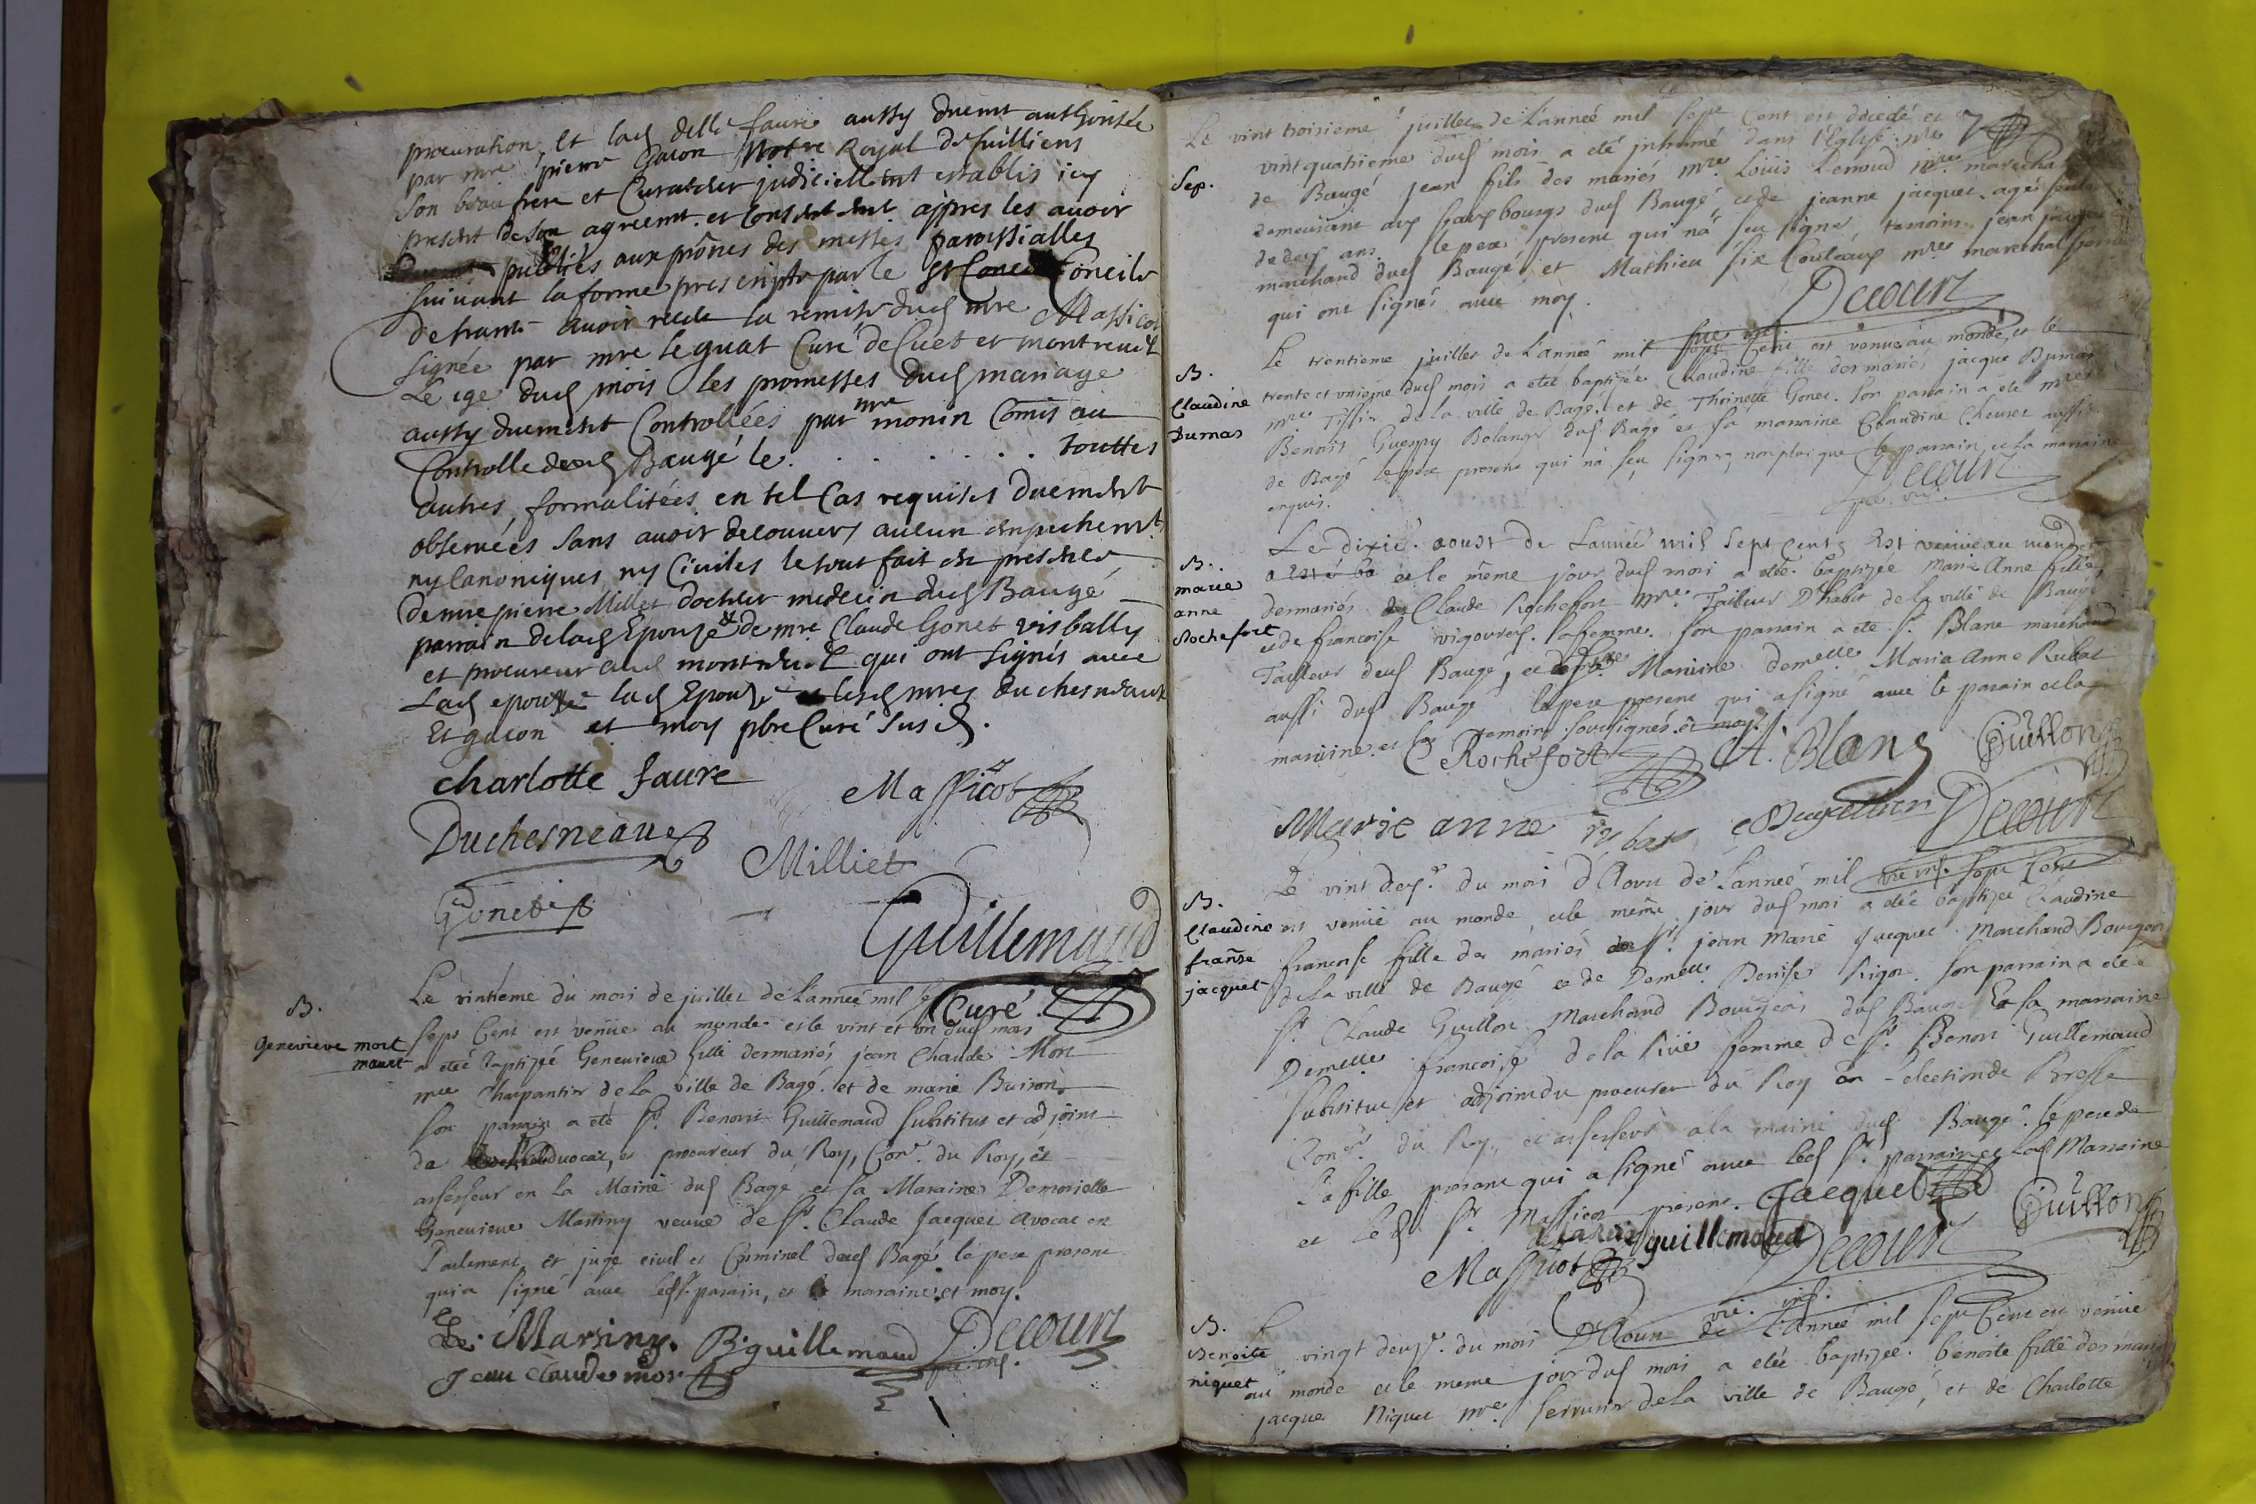 procuration, et lad. delle faure aussy duemt authorisée
par mre pierre Gacon Notre Royal de fuilliens
son beau frere et Curateur judiciellemt establis icy
present de son agreemt et Consentemt appres les avoir
publiés aux prônes des messes paroissialles
suivant la forme prescripte par le St Concile
de trante avoir receu la remise dud mre Massicot
signée par mre leguat Curé de Cuet et montreuil
Le ige dud mois les promesses dud mariage
aussy duement Controllées par mre monin Comis au
Controlle dud Baugé le . . . . . . . . touttes
autres formalitées en tel Cas requises duement
observées sans avoir decouvers aucun enpechemt
ny Canoniques ny Civiles le tout fait en presence
de mre pierre Milliet docteur medecin dud Baugé
parrain de lad Epouze & de mre Claude Gonet visbally
et procureur aud montreuil qui ont signés avec
Lad epouse lad Epouze lesd mres duchesneaux
Et gacon et moy pbre Curé susd.
charlotte faure
Massicot
Duchesneau
Milliet
Gonet
Guillemaud
Curé
B.
Genevieve mort
Le vintieme du mois de juillet de L'année mil
sept Cent est venüe au monde et le vint et un dud mois
a eteé baptizeé Genevieve fille des mariés jean Claude Mort
mre Charpantier de la ville de Bagé et de marie Buiron
son parrain a eté Sr. Benoit Guillemaud substitut et adjoint
de advocat, et procureur du Roy, Conr. du Roy, et
assesseur en la Mairie dud Bagé et sa Maraine Demoiselle
Genevieve Martiny veuve de Sr. Claude Jacquet Avocat en
Parlement, et juge civil et Criminel dud Bagé le pere present
qui a signé avec led Sr. parain, et maraine et moy.
Martiny. B: guillemaud Decourt
Jean Claude mort
Le vint troisieme juillet de L'anneé mil sept Cent est décedé et
Sep.
vint quatrieme dud mois a eté inhumé dans l'Eglise
de Baugé jean fils des mariés mre. Loüis Renoud mre. marechal
demeurant aux fauxbourgs dud Baugé et de jeanne jacquet agé
de deux ans. le pere present qui n'a seu signer, temoins jean
marchand dud Baugé et Mathieu six Couteaux mre. marechal
qui ont signés avec moy.
Decourt
B.
Claudine
Dumas
Le trentieme juillet de L'anneé mil sept Cent est venüe au monde, et le
trente et unieme dud mois a eteé baptizeé Claudine fille des mariés jacque Dumas
mre. Tissier de la ville de Bagé et de Thoinette Gonet. son parrain a eté
Benoit Guerry Bolanger dud Bagé et sa marraine Claudine Chevret aussi
de Bagé le pere present qui n'a seu signer, non plus que le parrain et la marraine
enquis.
Decourt
B.
marie
anne
Rochefort
Le dixié. aoust de L'année mil sept Cents Est venüe au monde
et le même jour dud mois a eteé baptizee Marie Anne fille
des mariés Claude Rochefort mre. Tailleur D'habit de la ville de Baugé
et de francoise sa femme. son parrain a eté Sr. Blanc marchand
Tailleur dud Baugé, et Maraine demelle Maria Anne Rubat
aussi dud Baugé le pere present qui a signé avec le parain et la
maraine et les temoins soussignés et moy
C Rochefort A. Blanc Guillon
Marie anne rubat Decourt
B.
Claudine
franse
jacquet
Le vint deuxe. du mois D'Aoust de L'anneé mil sept Cent
est venüe au monde et le même jour dud mois a eteé baptizee Claudine
francoise fille des mariés Sr. jean Marie Jacquet Marchand Bourgeois
de la ville de Baugé et de Demelle. Denise Rigot. son parrain a eté
Sr. Claude Guillon Marchand Bourgeois dud Baugé Et sa marraine
Demelle francoise de la Rive femme de Sr. Benoit Guillemaud
substitut et adjoint du procureur du Roy en élection de Bresse
Conr. du Roy, et assesseur a la mairie dud Baugé le pere de
La fille present qui a signé avec led Sr. parrain et lad Marraine
et led Sr. Massicot present. Jacquet Guillon
guillemaud
Massicot Decourt
B.
Benoite
niquet
Le vingt deuxe. du mois D'Aoust de L'année mil sept Cent est venüe
au monde et le meme jour dud mois a eteé baptizeé benoite fille des mariés
jacque Niquet mre. serrurier de la ville de Baugé, et de Charlotte